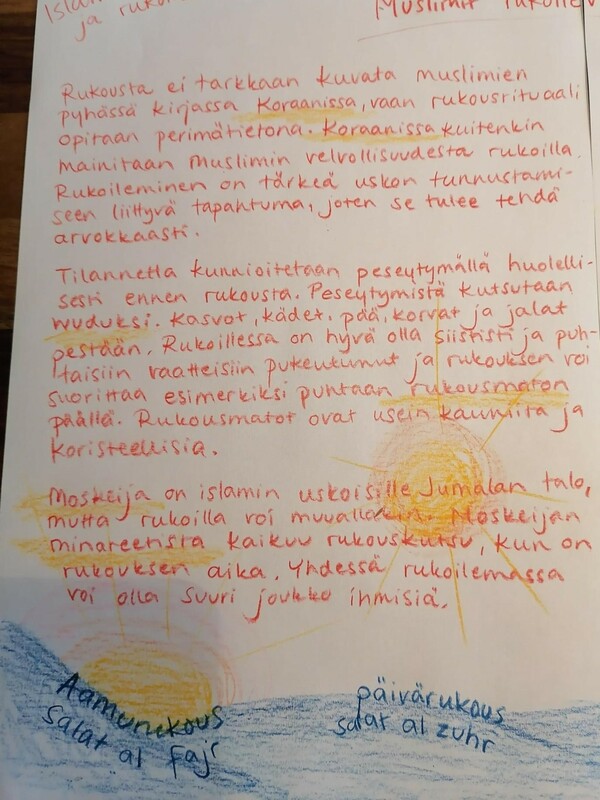 ja
Muslimit
Rukousta ei tarkkaan kuvata muslimien
pyhässä kirjassa Koraanissa, vaan rukousrituaali
opitaan perimätietona. Koraanissa kuitenkin
mainitaan muslimin velvollisuudesta rukoilla.
Rukoileminen on tärkeä uskon tunnustami-
seen liittyvä tapahtuma, joten se tulee tehdä
arvokkaasti.
Tilannetta kunnioitetaan peseytymällä huolelli-
sesti ennen rukousta. Peseytymistä kutsutaan
wuduksi. Kasvot, kädet, pää, korvat ja jalat
pestään. Rukoillessa on hyvä olla siististi ja puh-
taisiin vaatteisiin pukeutunut ja rukouksen voi
suorittaa esimerkiksi puhtaan rukousmaton
päällä. Rukousmatot ovat usein kauniita ja
koristeellisia.
Moskeija on islamin uskoisille Jumalan talo,
mutta rukoilla voi muuallakin. Moskeijan
minareetista kaikuu rukouskutsu, kun on
rukouksen aika. Yhdessä rukoilemassa
voi olla suuri joukko ihmisiä.
Aamurukous
salat al fajr
päivärukous
salat al zuhr